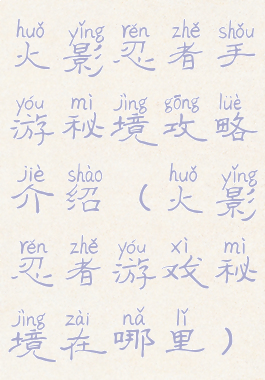 huǒ yǐng rěn zhě shǒu
火影忍者手
yóu mì jìng gōng lüè
游秘境攻略
jiè shào huǒ yǐng
介绍（火影
rěn zhě yóu xì mì
忍者游戏秘
jìng zài nǎ lǐ
境在哪里）